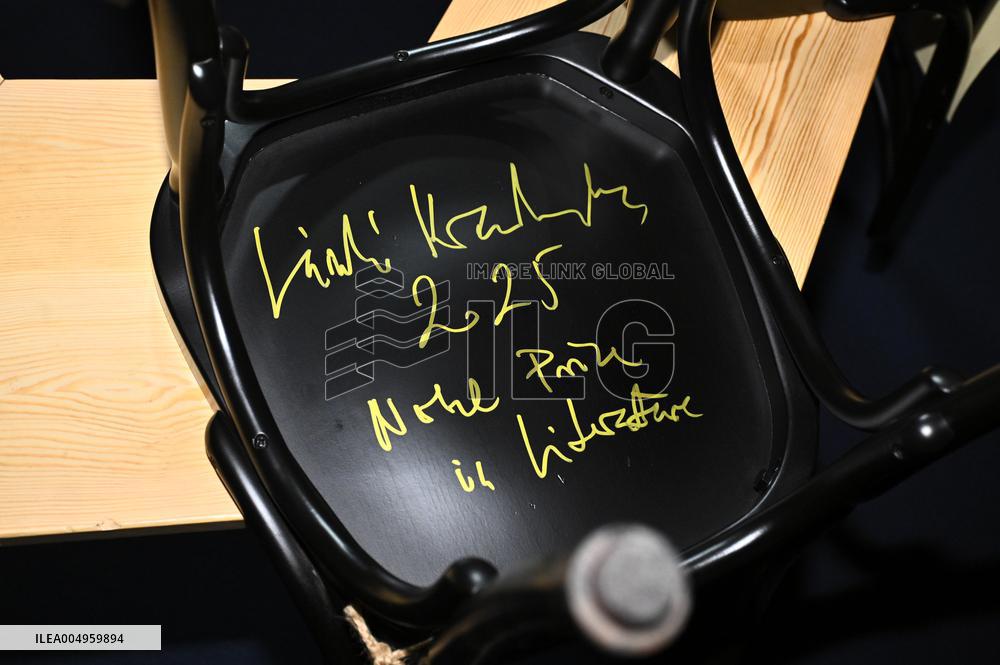 László Krasznahorkai
2025
Nobel Prize
in Literature
IMAGE LINK GLOBAL
ILG
ILEA004959894